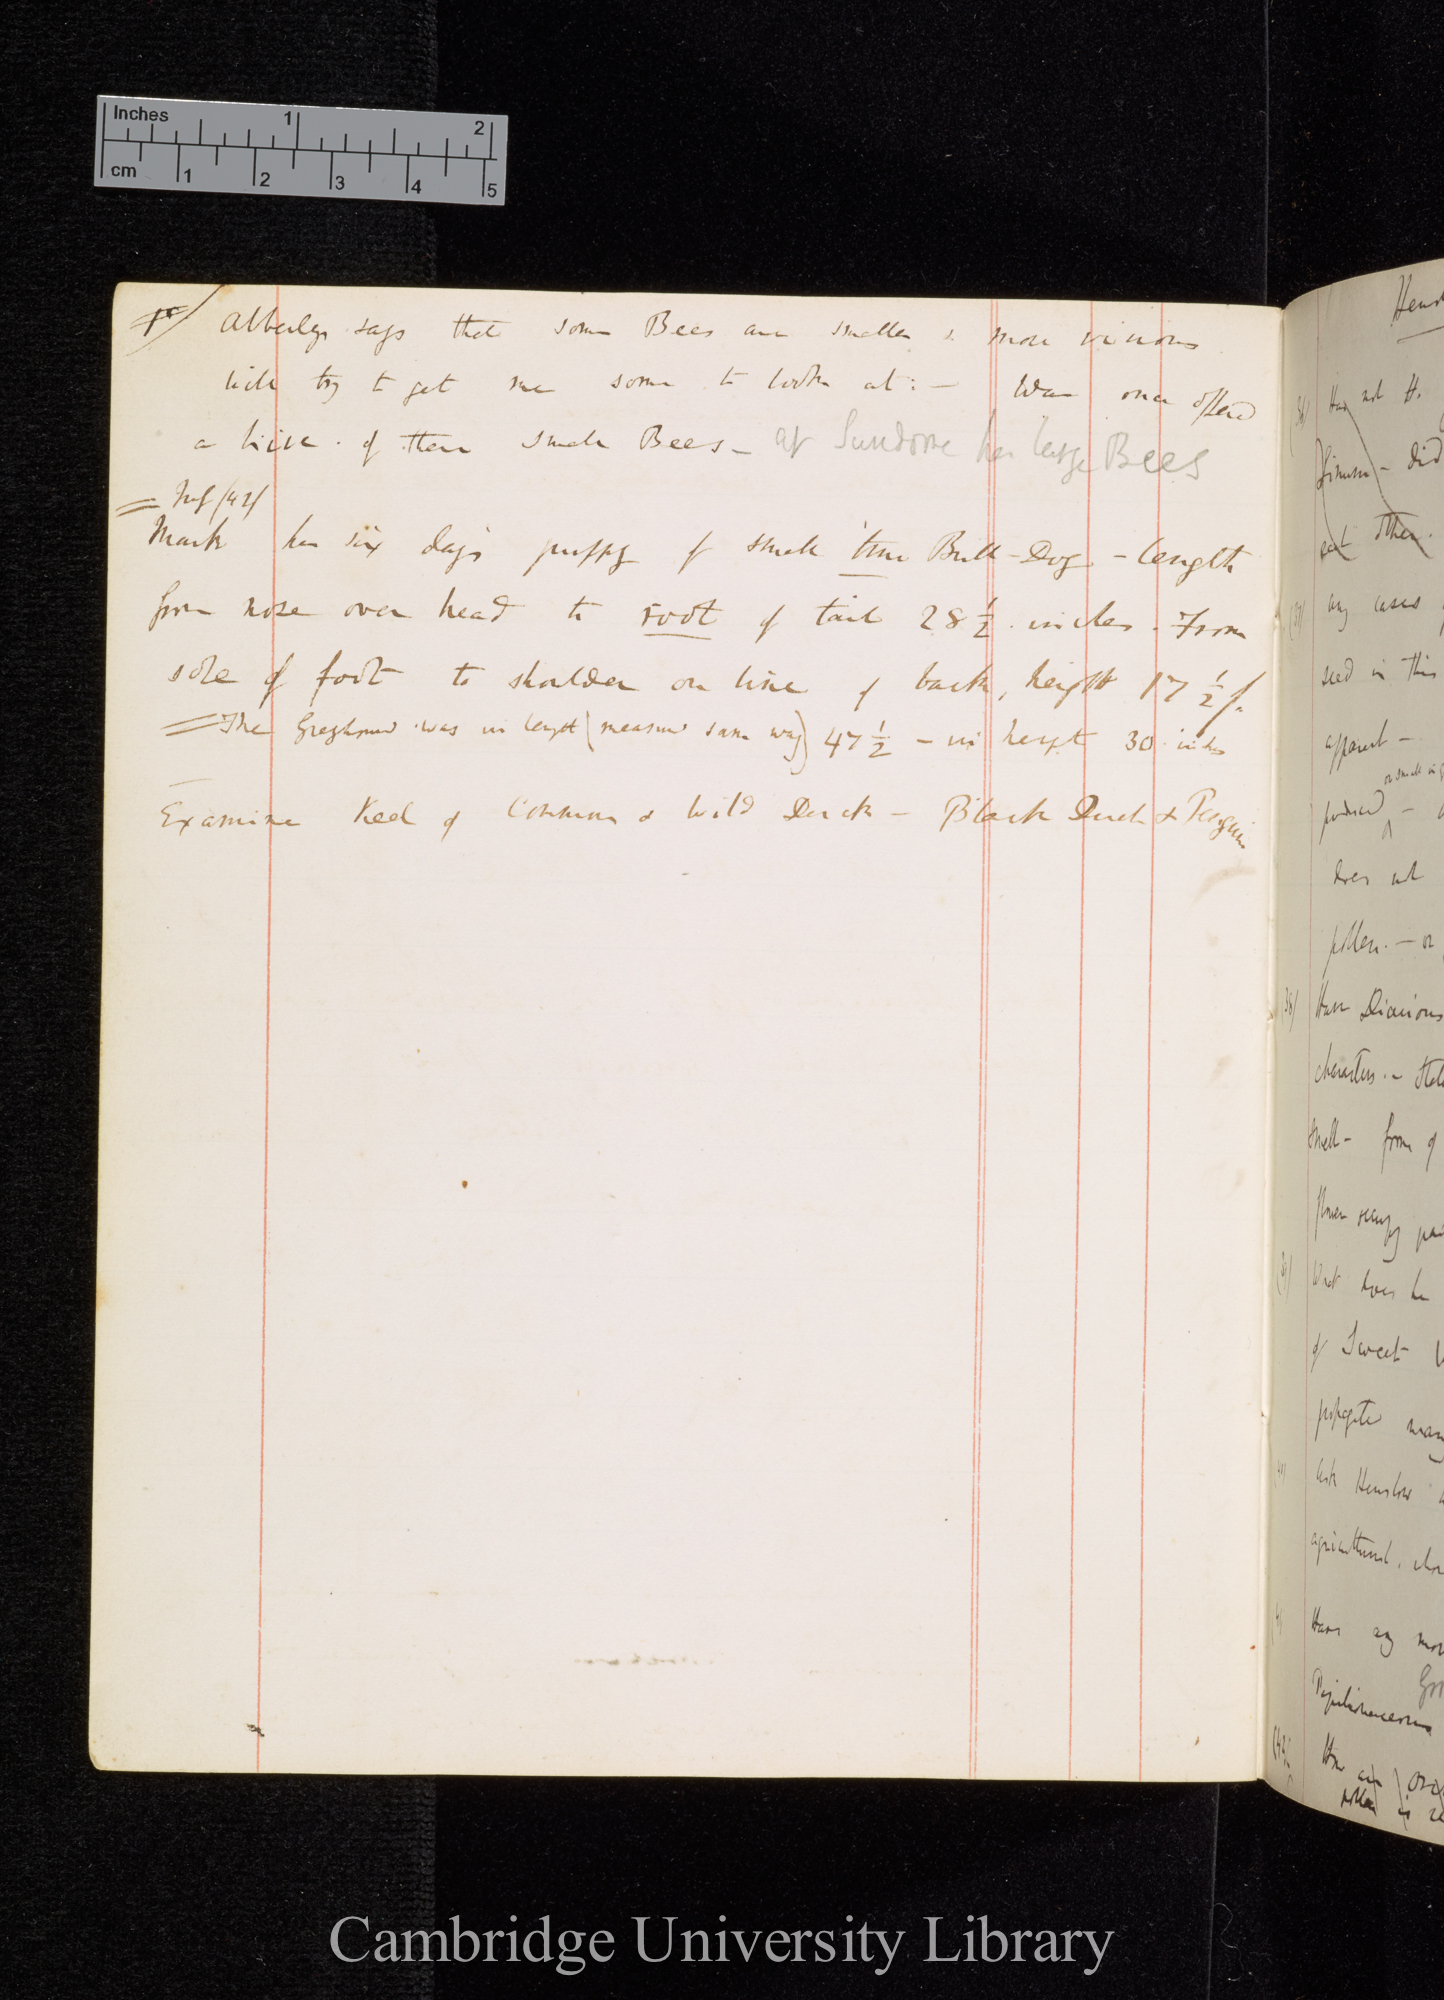 Inches 1 2
cm 1 2 3 4 5
Abberley says that some Bees are smaller & more vicious
will try to get me some to look at: — Was once offered
a hive of these small Bees — at Sundorne has large Bees
Mark has six days puppy of small true Bull-Dog — length
from nose over head to root of tail 28 1/2 inches. From
sole of foot to shoulder on line of back, height 17 1/2
The Greyhound was in length (measured same way) 47 1/2 — in height 30 inches
Examine Keel of Common & Wild Duck — Black Duck & Penguin
Has not H.
— did
other.
any cases
seed in this
apparent —
produced —
does not
pollen. — or
(38) Have Dioecious
characters. —
smell — from
What does he
of Sweet
propagate many
Ask Henslow
agricultural.
Have any more
Papilionaceous
Cambridge University Library